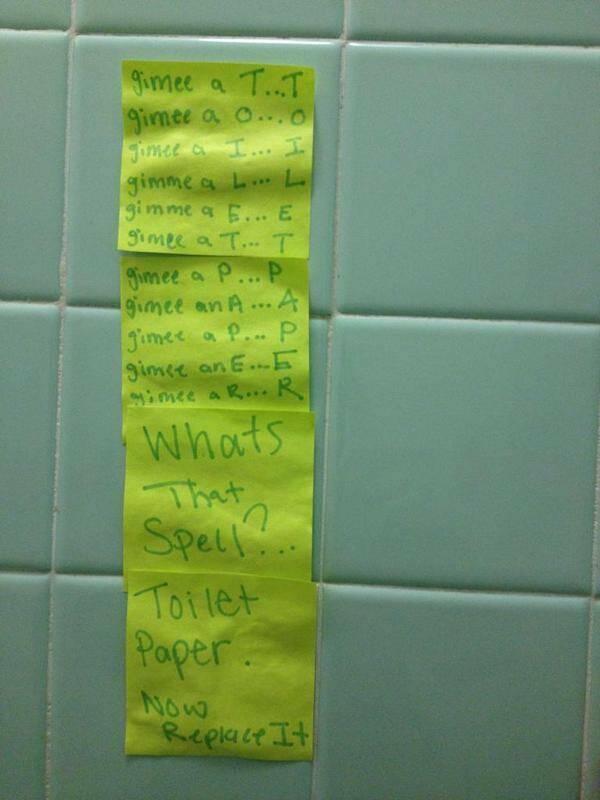 gimee a T...T
gimee a O...O
gimee a I... I
gimme a L... L
gimme a E... E
gimee a T... T
gimee a P...P
gimee an A...A
gimee a P... P
gimee an E...E
gimee a R... R
Whats
That
Spell?...
Toilet
Paper.
Now
Replace It